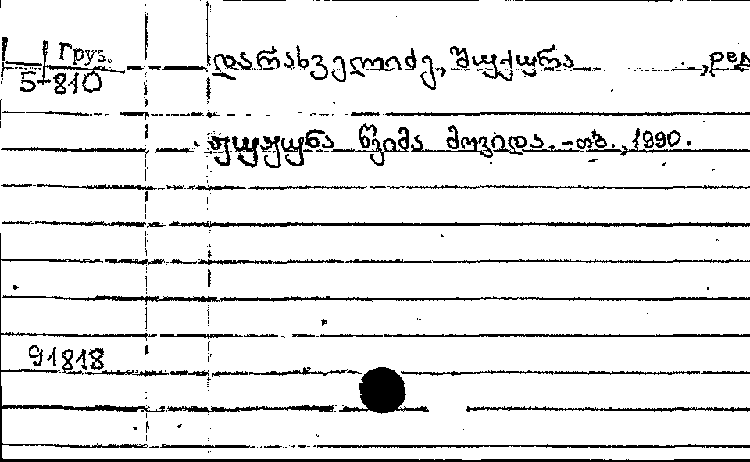 Груз.
5-810
დარახველიძე, შუქურა, ред
ჟუჟუნა წვიმა მოვიდა. - თბ., 1990.
91818